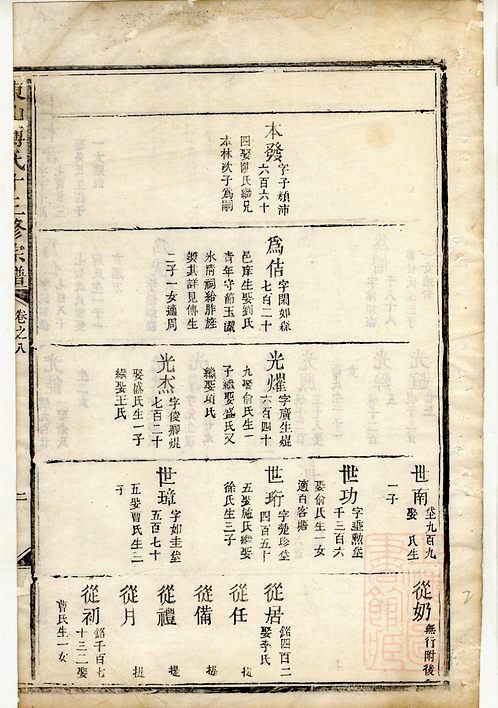 卷之八
二
本發
字子楨沛
六百六十
四娶關氏繼兄
本林次子為嗣
為佶
字閑如森
七百二十
邑庠生娶劉氏
青年守節玉圃
氷清祠給胙旌
獎其詳見傳生
二子一女適周
光燿
字廣生焜
六百四十
九娶俞氏生一
子繼娶盛氏又
繼娶項氏
光杰
字俊卿焜
七百二十
娶盛氏生一子
繼娶王氏
世南
垈九百九
娶 氏生
一子
世功
字垂勲垈
千三百六
娶俞氏生一女
適百客塘
世珩
字楚珍垈
四百五十
五娶施氏繼娶
徐氏生三子
世璋
字如圭垈
五百七十
五娶曹氏生二
子
從奶
無行附後
從居
銘四百二
娶李氏
從任
從備
從禮
從月
從初
銘千百七
十三二娶
曹氏生一女